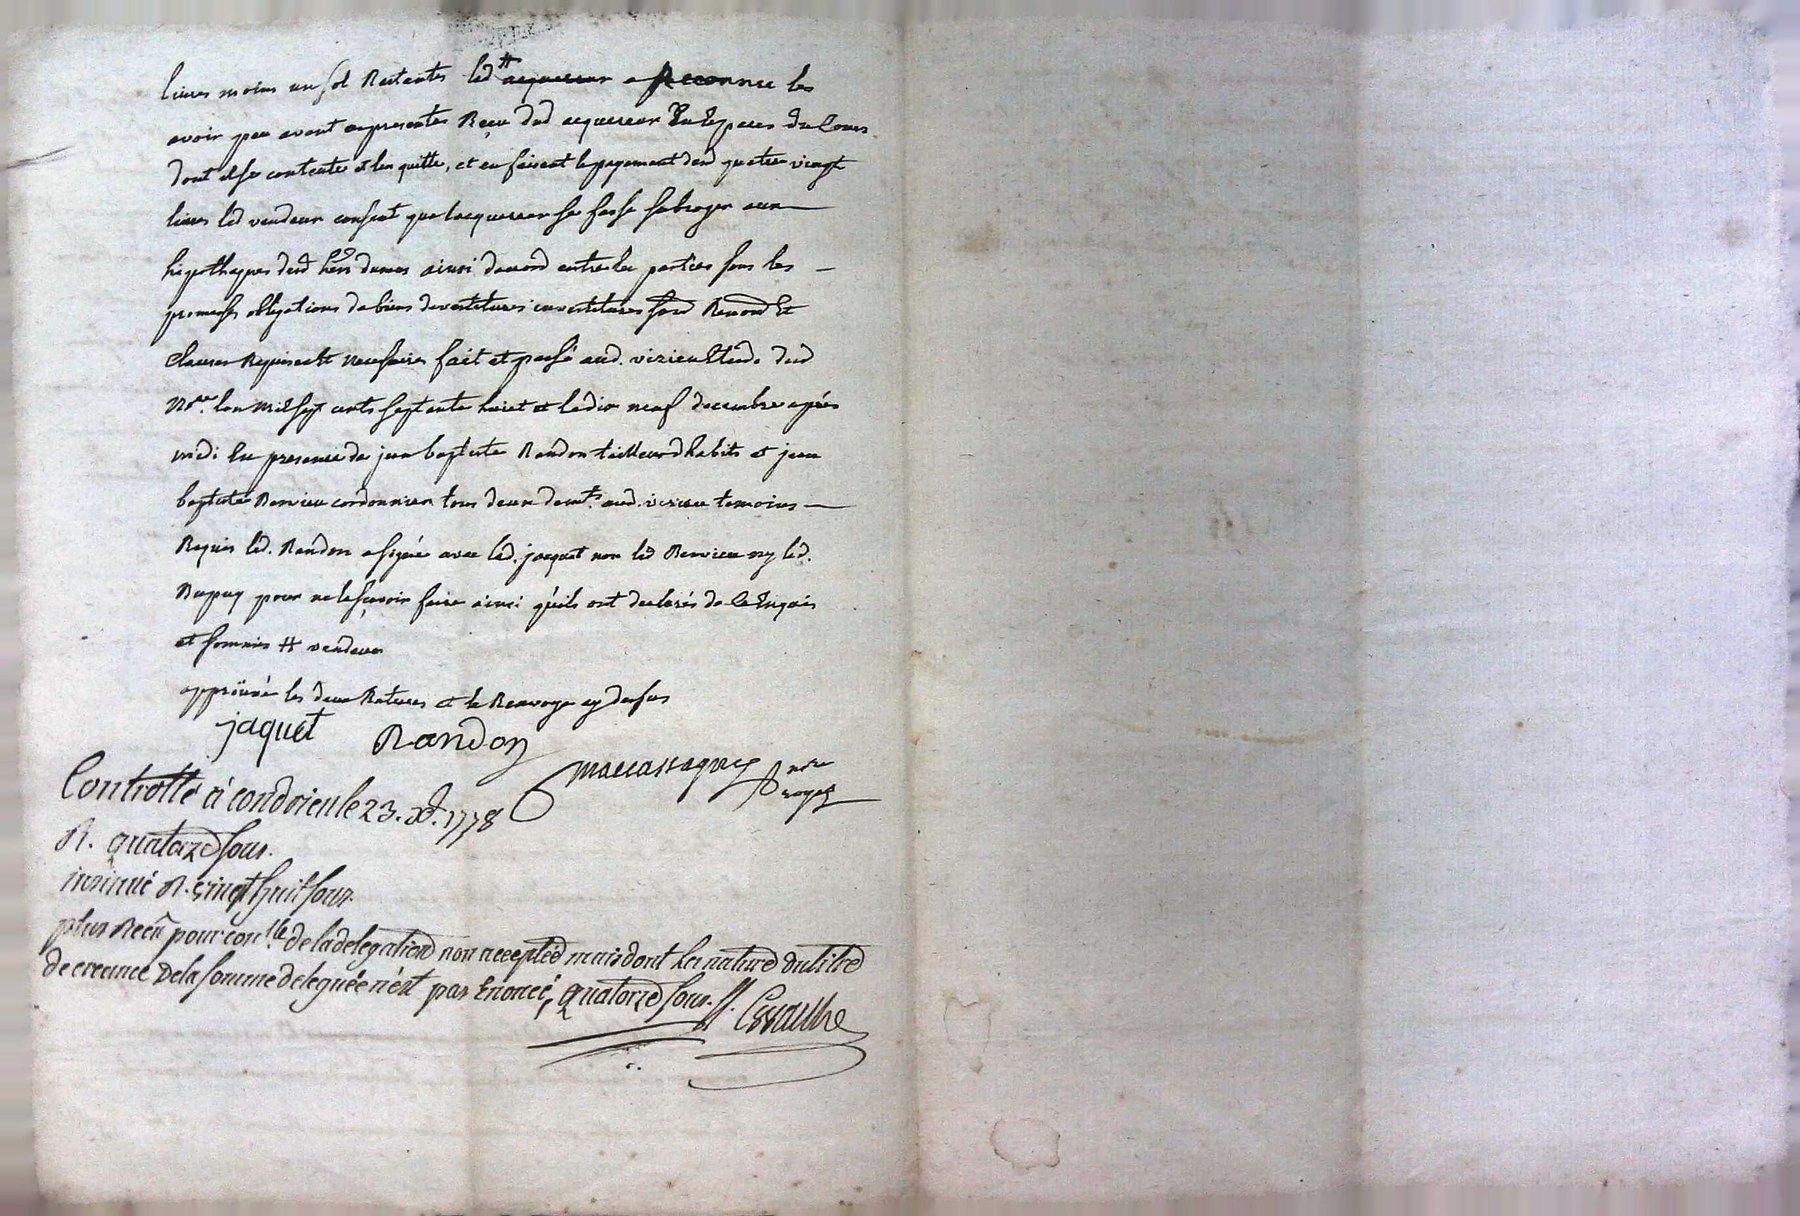 livres moins un sol Restantes led # acquereur a Reconnu les
avoir peu avant ces presentes Reçu dud acquereur En Especes du Cours
dont il se contente et l'en quitte, et en faisant le payement desd quatre vingt
livres led vendeur consent que lacquereur se fasse subroger aux
hipotheques desd hers dumas ainsi dacord entre les parties sous les
promesses obligations de biens devestitures investitures Renond Et
Clauses Requises et necessaires fait et passé aud. virieu Etude dud
Nre. lan mil sept cents septante huict et le dix neuf decembre après
midi En presence de jean baptiste Randon tailleur d'habits et jean
baptiste Rervieu cordonnier tous deux demts. aud. virieu temoins
Requis led. Randon a signé avec led. jacquet non led Rervieu ny led.
Dupuy pour ne le sçavoir faire ainsi qu'ils ont declarés de ce Enquis
et sommés # vendeur
approuvé les deux Ratures et le Renvoye cy dessus
jaquet Randon
nre royal
Controllé à condrieu le 23. Xb. 1778
R. quatorze sous.
insinué R. vingt huit sous.
plus Reçu pour con.lle de la delegation non acceptée mais dont la nature du titre
de creance De la somme deleguée n'est pas Enoncé, quatorze sous.